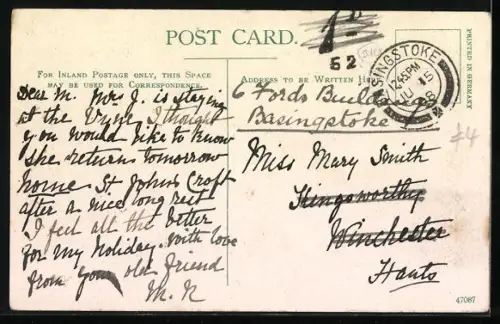 POST CARD.
52
FOR INLAND POSTAGE ONLY, THIS SPACE
MAY BE USED FOR CORRESPONDENCE.
ADDRESS TO BE WRITTEN HERE
PRINTED IN GERMANY
SINGSTOKE
JU 15
Dear M. Mrs J. is staying
at the Vyne, I thought
you would like to know
she returns tomorrow
home. St. Johns Croft
after a nice long rest
I feel all the better
for my holiday. with love
from your old friend
M. R
6 Fords Buildings
Basingstoke
Miss Mary Smith
Kingsworthy
Winchester
Hants
#4
47087